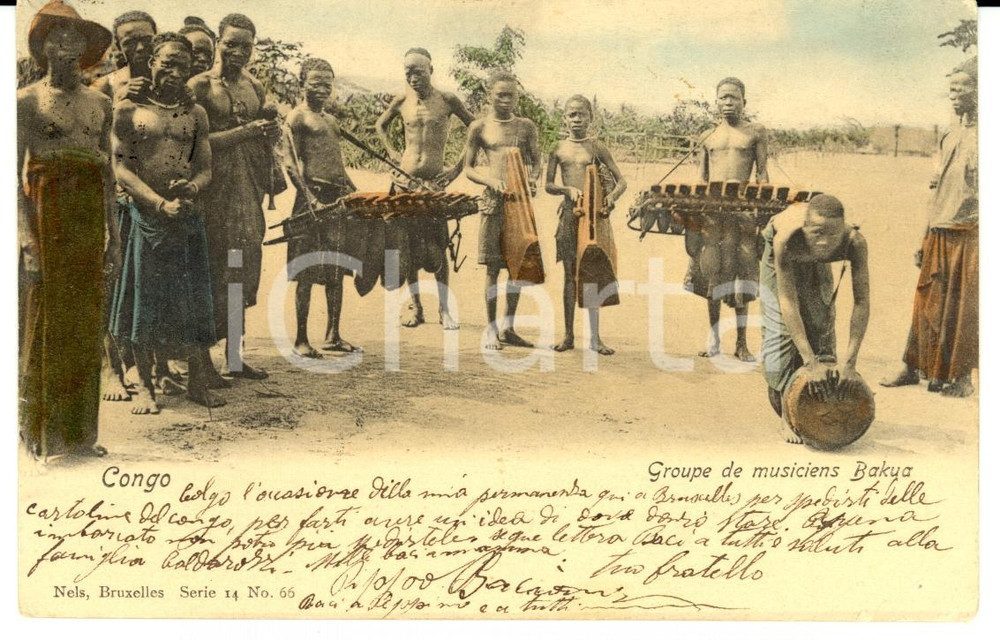 iCharta
Congo
Groupe de musiciens Bakua
Colgo l'occasione della mia permanenza qui a Bruxelles per spedirti delle
cartoline del Congo, per farti avere un idea di dove dovrò stare.
imbarcato non potrò più segue lettera Baci a tutti e saluti alla
famiglia baci mamma
tuo fratello
Nels, Bruxelles Serie 14 No. 66
Baci a Peppino e a tutti